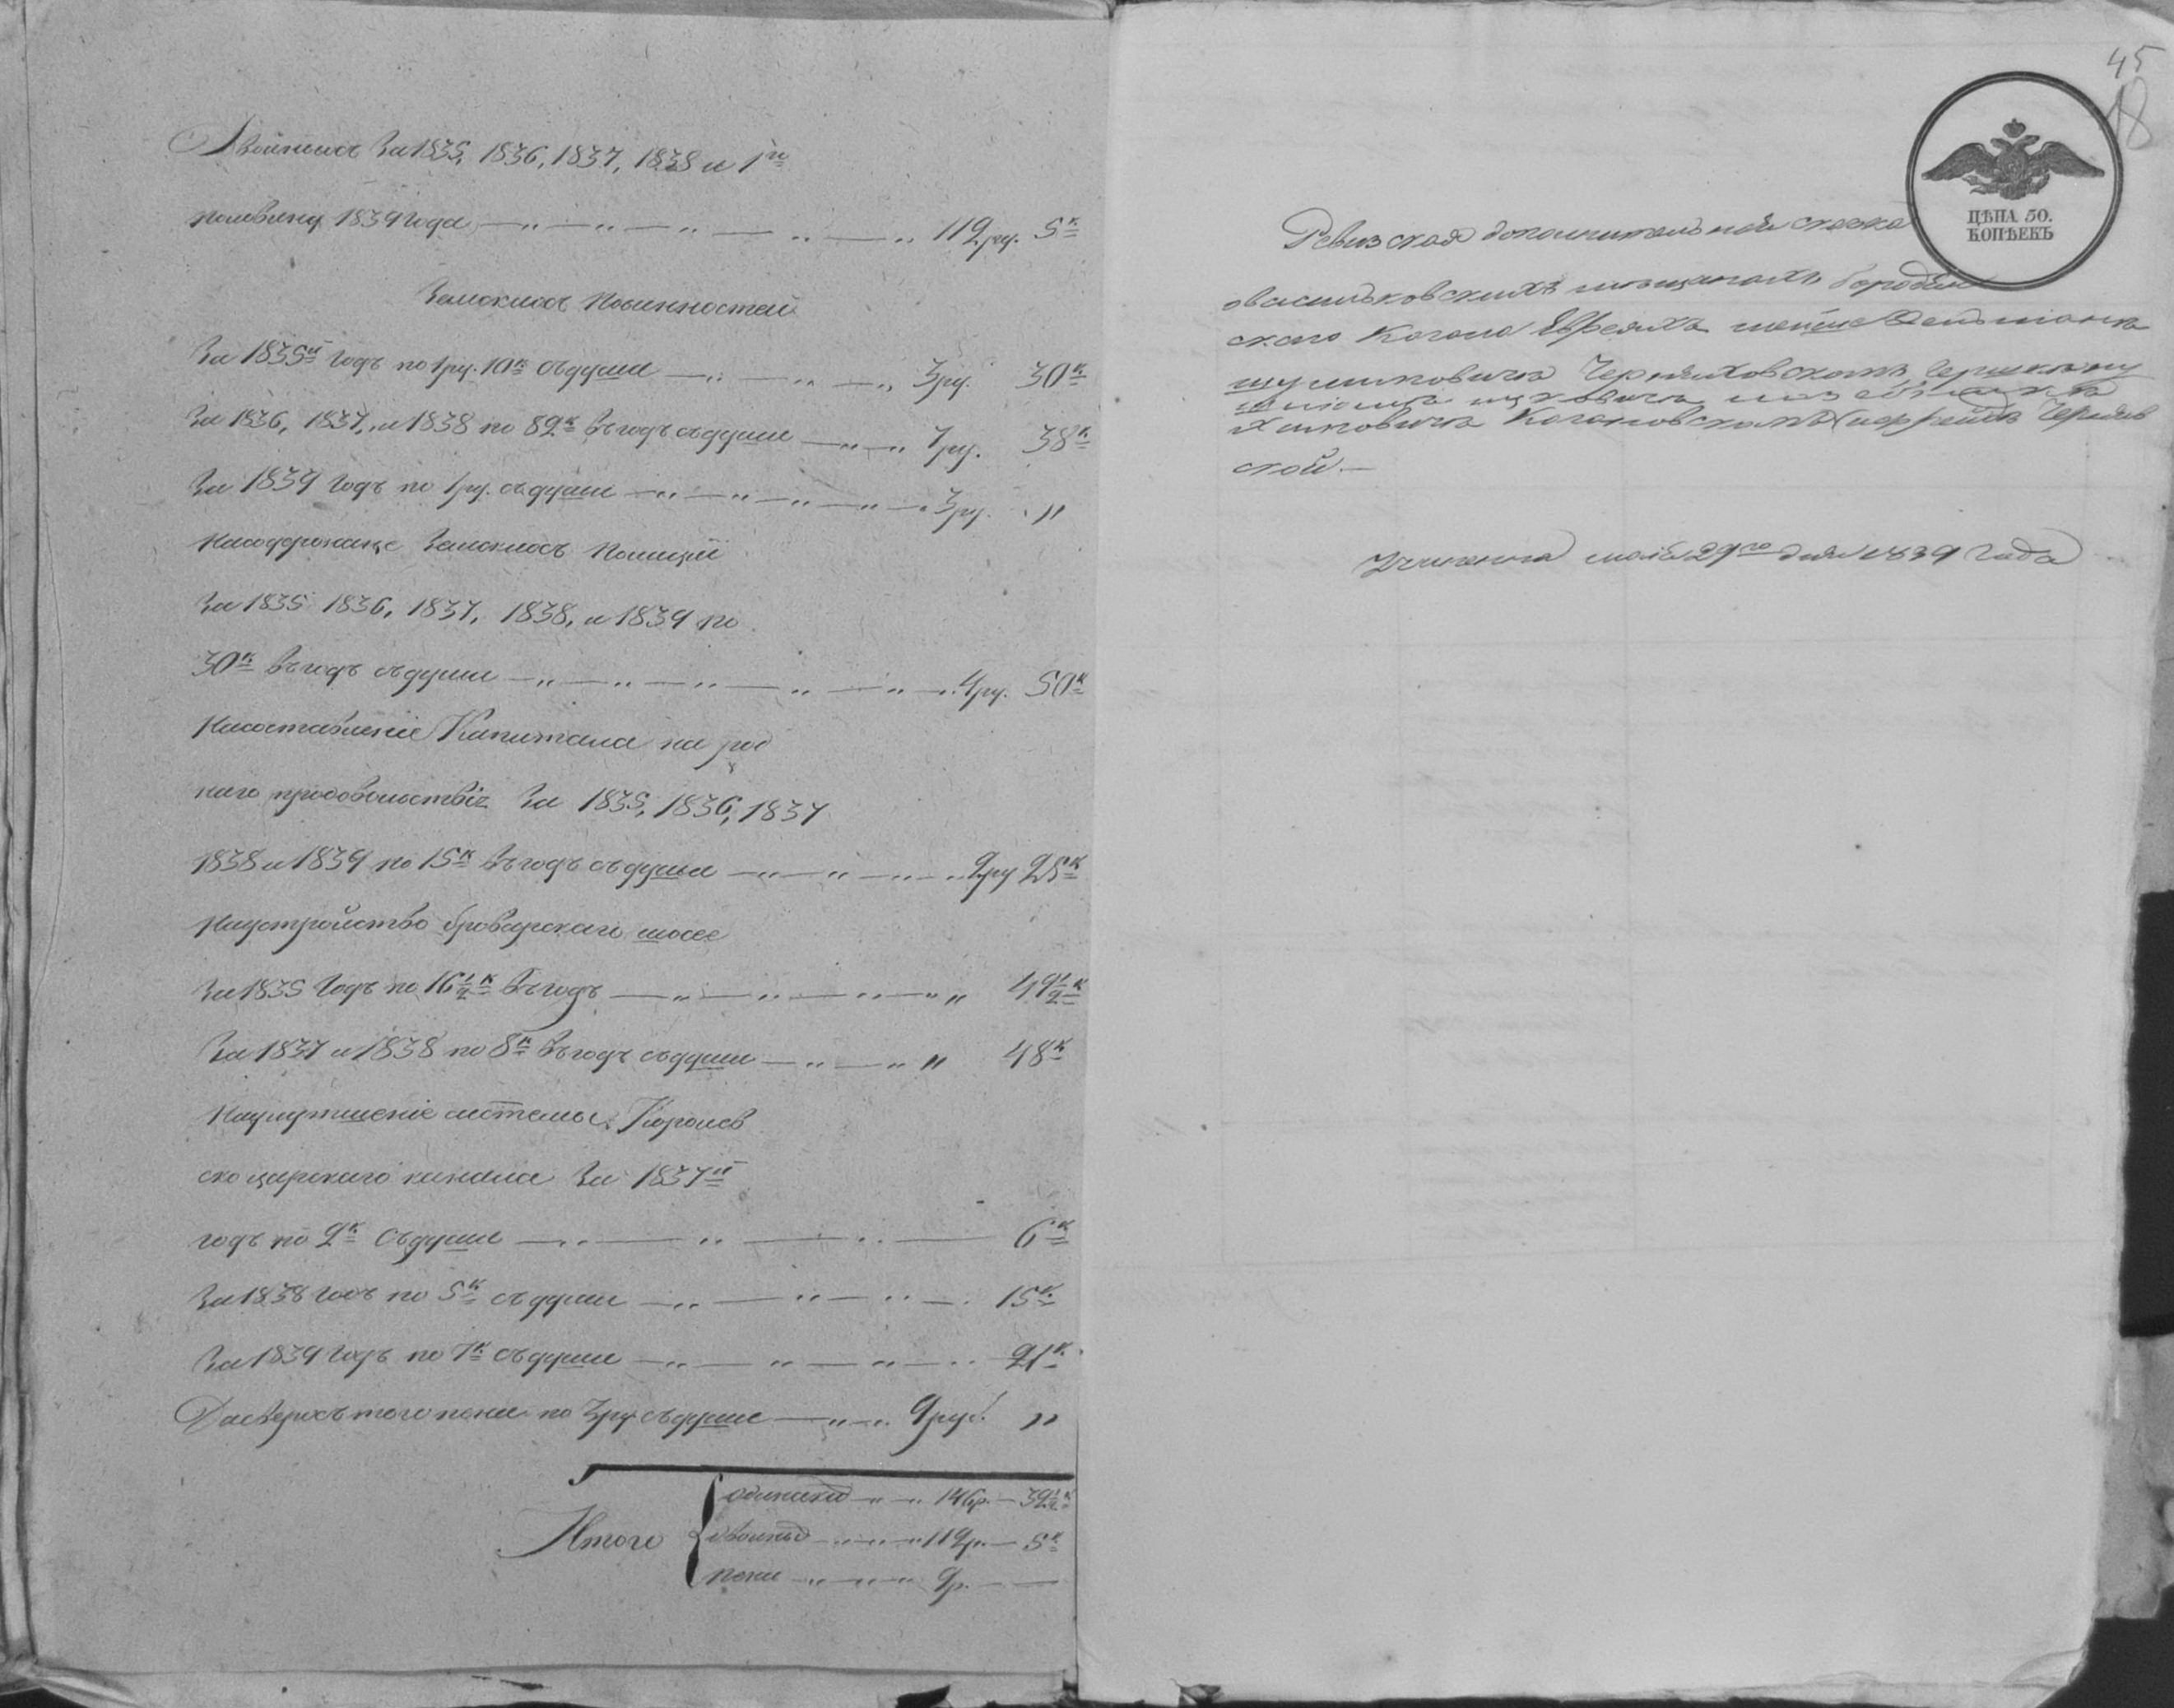 Двойныхъ За 1835, 1836, 1837, 1838 и 1ю
половину 1839 года — 112 ру. 5 к
Земскихъ Повинностей
За 1835й годъ по 1 ру. 10 к съ души — 3 ру. 30 к
За 1836, 1837, и 1838 по 82 к въ годъ съ души — 7 ру. 38 к
За 1839 годъ по 1 ру. съ души — 3 ру. "
На содержание Полиции
За 1835 1836, 1837, 1838, и 1839 по
30 к въ годъ съ души — 4 ру. 50 к
На составленіе Капитала народ
наго продовольствія За 1835, 1836, 1837
1838 и 1839 по 15 к въ годъ съ души — 2 ру 25 к
На устройство броварскаго шосее
За 1835 годъ по 16 1/2 к въ годъ — " 49 1/2 к
За 1837 и 1838 по 8 к въ годъ съ души — " 48 к
На улутшеніе системы Королев
ско царскаго канала За 1837й
годъ по 2 к съ души — 6 к
За 1838 годъ по 5 к съ души — 15 к
За 1839 годъ по 7 к съ души — 21 к
Да сверхъ того пени по 3 ру съ души — 9 руб. "
Итого
одинакій — 146 р. — 39 1/2 к
двойный — 112 р. — 5 к
пени — 9 р. —
45
18
ЦѢНА 50.
КОПѢЕКЪ
Ревизская дополнительная сказка
о васильковскихъ мещанахъ
скаго Кагала Евреяхъ
Черняховскомъ
Кагановскомъ
ской. —
Учинена маія 29го дня 1839 Года